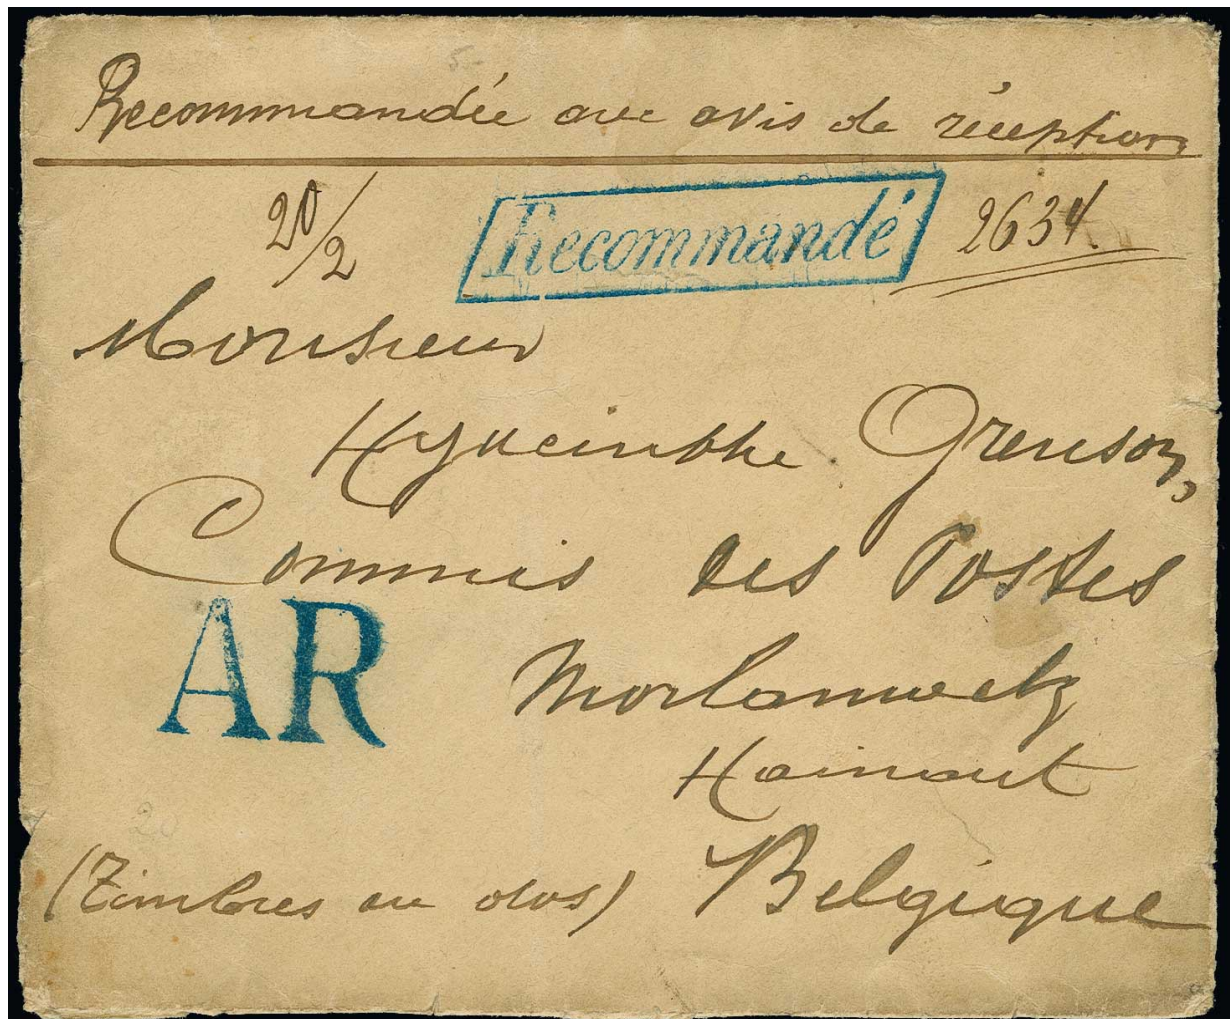 Recommandée avec avis de réception
20/2 Recommandé 2634.
Monsieur
Hyacinthe Grenson,
Commis des Postes
AR
Morlanwelz
Hainaut
(Timbres au dos) Belgique